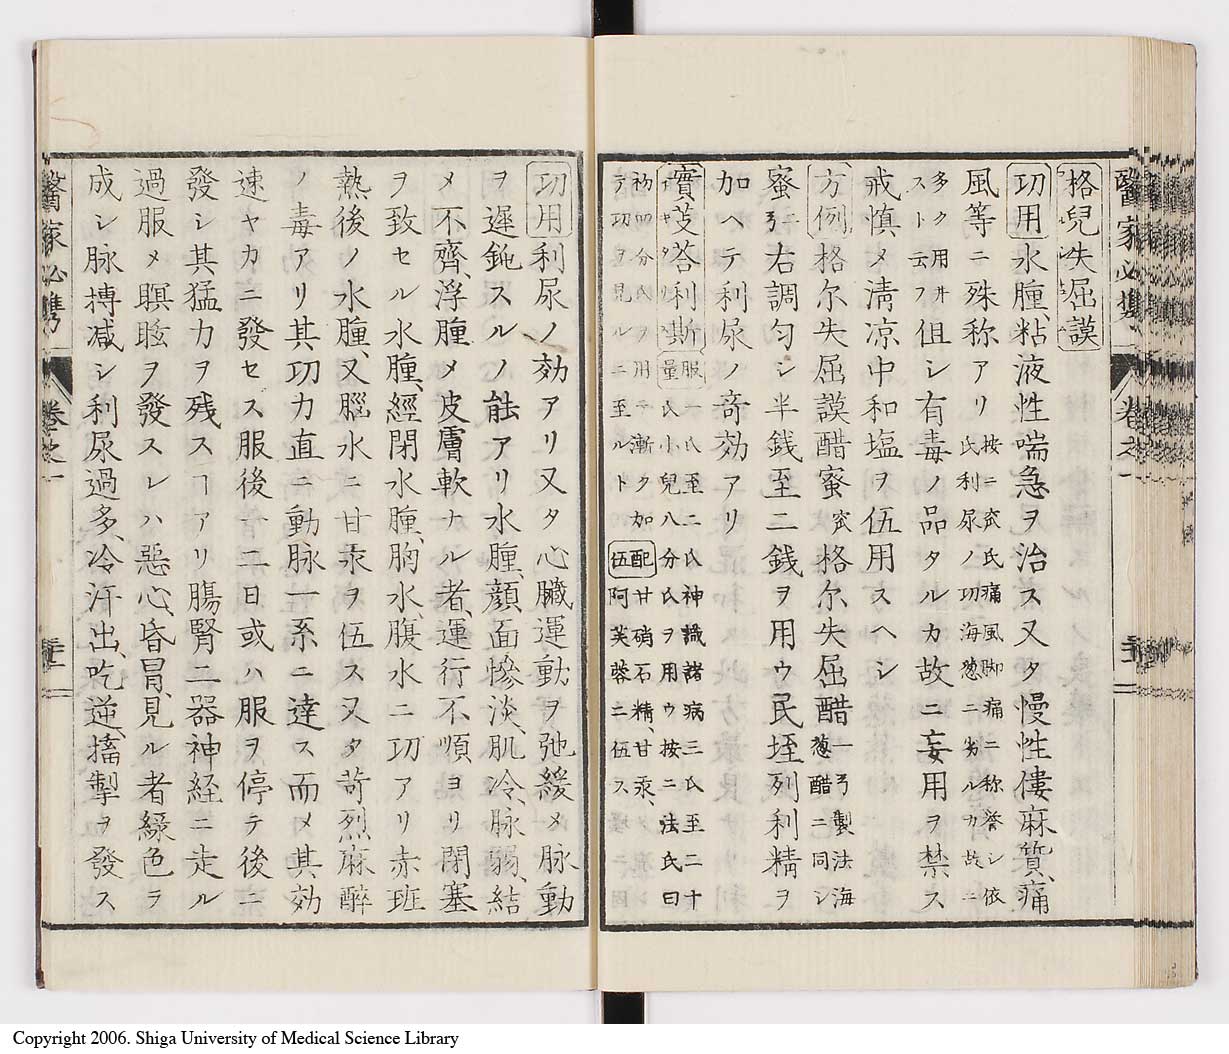 格兒失屈謨
功用水腫、粘液性喘急ヲ治ス又タ慢性僂麻質、痛
風等ニ殊称アリ
按ニ㝌氏痛風脚痛ニ称誉シ依
氏利尿ノ功海葱ニ劣ルカ故ニ
多ク用井
スト云フ
但シ有毒ノ品タルカ故ニ妄用ヲ禁ス
戒慎メ清凉中和塩ヲ伍用スヘシ
方例格尓失屈謨醋蜜
格尓失屈醋一弓製法海
葱醋ニ同シ
蜜
右調匀シ半銭至二銭ヲ用ウ民垤列利精ヲ
加ヘテ利尿ノ奇効アリ
實芰荅利斯
服量一氏至二氏神識諸病三氏至二十
氏小兒八分氏ヲ用ウ按ニ法氏曰
初四分氏ヲ用テ漸ク加
ヲ功ヲ見ルニ至ルト
配伍
甘硝石精、甘汞、
阿芙蓉ニ伍ス
功用利尿ノ効アリ又タ心臓運動ヲ弛緩メ脉動
ヲ遅鈍スルノ能アリ水腫、顔面惨淡、肌冷、脉弱、結
メ不齊、浮腫メ皮膚軟ナル者、運行不順ヨリ閉塞
ヲ致セル水腫、經閉水腫、胸水、腹水ニ功アリ赤班
熱後ノ水腫、又腦水ニ甘汞ヲ伍ス又タ苛烈麻酔
ノ毒アリ其功力直ニ動脉一系ニ達ス而メ其効
速ヤカニ發セス服後十二日或ハ服ヲ停テ後ニ
發シ其猛力ヲ残スヿアリ腸腎二器神経ニ走ル
過服メ瞑眩ヲ發スレハ惡心、昏冒、見ル者緑色ヲ
成シ脉搏減シ利尿過多、冷汗出、吃逆、搐掣ヲ發ス
醫家必携
卷之一
Copyright 2006. Shiga University of Medical Science Library